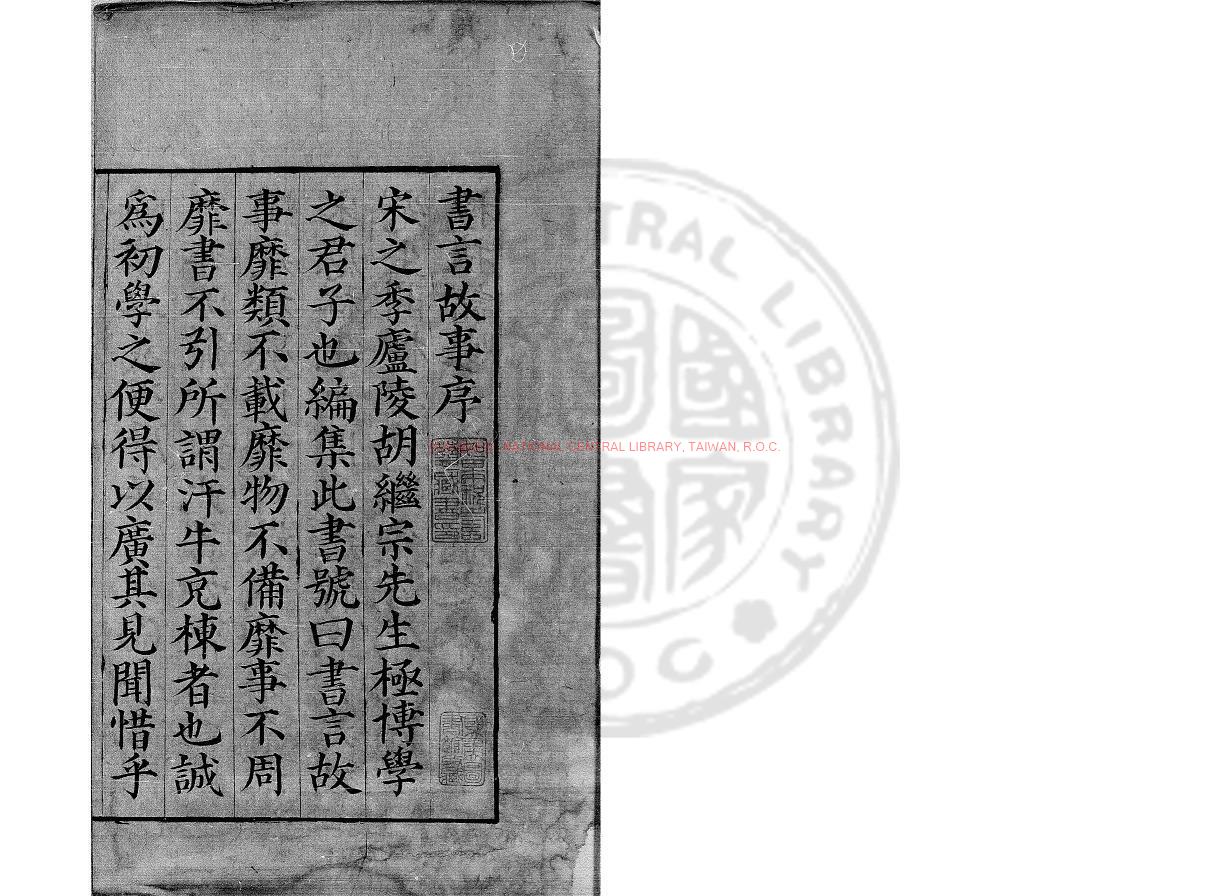 書言故事序
宋之季廬陵胡繼宗先生極博學
之君子也編集此書號曰書言故
事靡類不載靡物不備靡事不周
靡書不引所謂汗牛充棟者也誠
爲初學之便得以廣其見聞惜乎
NATIONAL CENTRAL LIBRARY, TAIWAN, R.O.C.
TRAL LIBRARY
ROC
國家